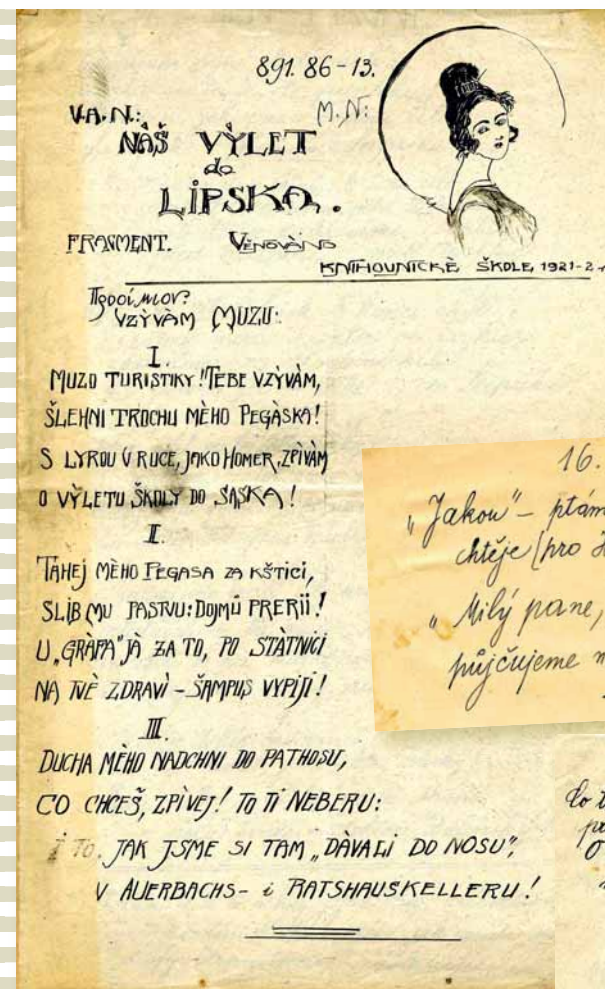 891.86-13.
V.A.N.:
M.N:
NÁŠ VÝLET
do
LIPSKA.
FRAGMENT. VĚNOVÁNO
KNIHOVNICKÉ ŠKOLE, 1921-2
VZÝVÁM MUZU:
I.
MUZO TURISTIKY! TEBE VZÝVÁM,
ŠLEHNI TROCHU MÉHO PEGÁSKA!
S LYROU V RUCE, JAKO HOMER, ZPÍVÁM
O VÝLETU ŠKOLY DO SASKA!
II.
TÁHEJ MÉHO PEGASA ZA KŠTICI,
SLIB MU PASTVU: DOJMŮ PRERII!
U „GRÁFA" JÁ ZA TO, PO STÁTNICI
NA TVÉ ZDRAVÍ – ŠAMPUS VYPIJI!
III.
DUCHA MÉHO NADCHNI DO PATHOSU,
CO CHCEŠ, ZPÍVEJ! TO TI NEBERU:
I TO, JAK JSME SI TAM „DÁVALI DO NOSU",
V AUERBACHS- i RATSHAUSKELLERU!
16.
„Jakou" – ptám
chtěje (pro
„Milý pane,
půjčujeme